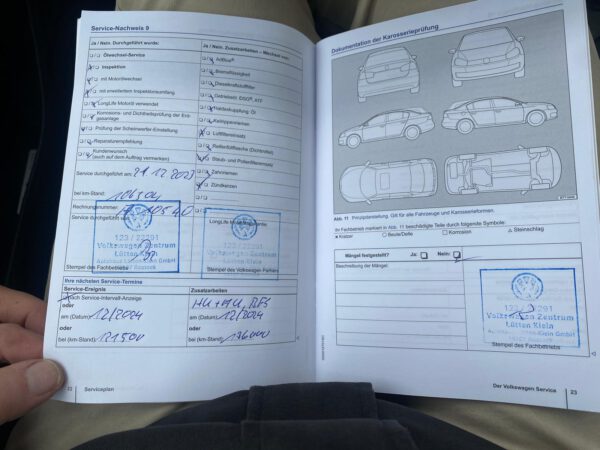 Service-Nachweis 9
Ja / Nein. Durchgeführt wurde:
Ölwechsel-Service
Inspektion
mit Motorölwechsel
mit erweitertem Inspektionsumfang
LongLife Motoröl verwendet
Korrosions- und Dichtheitsprüfung der Erd-
gasanlage
Prüfung der Scheinwerfer-Einstellung
Reparaturempfehlung
Kundenwunsch
(auch auf dem Auftrag vermerken)
Service durchgeführt am: 21.12.2023
bei km-Stand: 106304
Rechnungsnummer: 10540
Service durchgeführt von:
123 / 22291
Volkswagen Zentrum
Lütten Klein
Stempel des Fachbetriebs
Ja / Nein. Zusatzarbeiten – Wechsel von:
AdBlue®
Bremsflüssigkeit
Dieselkraftstofffilter
Getriebeöl: DSG®, ATF
Haldexkupplung Öl
Keilrippenriemen
Luftfiltereinsatz
Reifenfüllflasche (Dichtmittel)
Staub- und Pollenfiltereinsatz
Zahnriemen
Zündkerzen
Volkswagen Zentrum
Lütten Klein
Stempel des Volkswagen Partners
Ihre nächsten Service-Termine
Service-Ereignis
nach Service-Intervall-Anzeige
oder
am (Datum) 12/2024
oder
bei (km-Stand) 121500
Zusatzarbeiten
HU+AU, BFS
am (Datum) 12/2024
oder
bei (km-Stand) 136000
Serviceplan
Dokumentation der Karosserieprüfung
Abb. 11 Prinzipdarstellung. Gilt für alle Fahrzeuge und Karosserieformen.
Ihr Fachbetrieb markiert in Abb. 11 beschädigte Teile durch folgende Symbole:
× Kratzer ○ Beule/Delle □ Korrosion △ Steinschlag
Mängel festgestellt? Ja: Nein:
Beschreibung der Mängel:
123 / 22291
Volkswagen Zentrum
Lütten Klein
Stempel des Fachbetriebs
Der Volkswagen Service 23